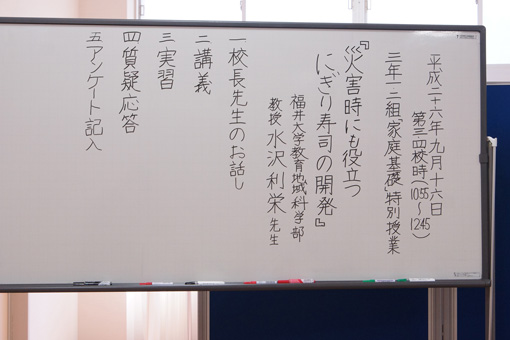 平成二十六年九月十六日
第三四校時(10:55～12:45)
三年一二組「家庭基礎」特別授業
『災害時にも役立つ
にぎり寿司の開発』
福井大学教育地域科学部
教授 水沢利栄先生
一 校長先生のお話し
二 講義
三 実習
四 質疑応答
五 アンケート記入